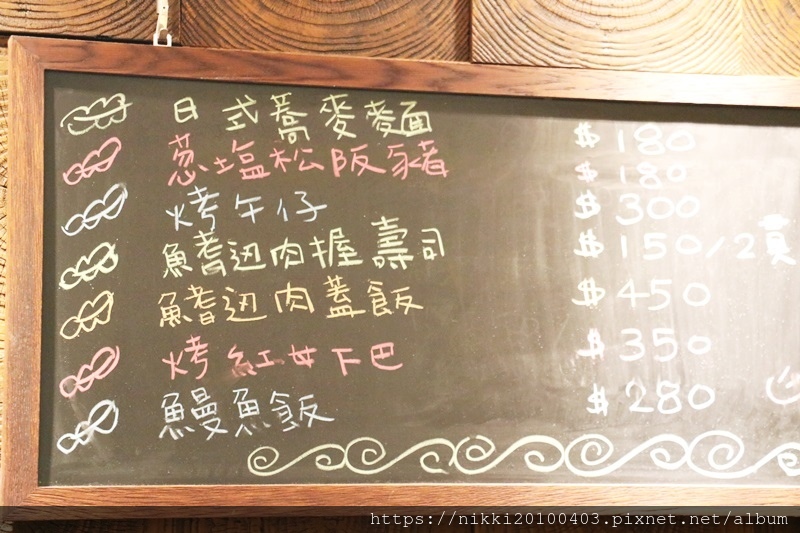 日式蕎麥麵 $180
蔥塩松阪豬 $180
烤午仔 $300
魚耆邊肉握壽司 $150/2貫
魚耆邊肉蓋飯 $450
烤紅女下巴 $350
鰻魚飯 $280
https://nikki20100403.pixnet.net/album